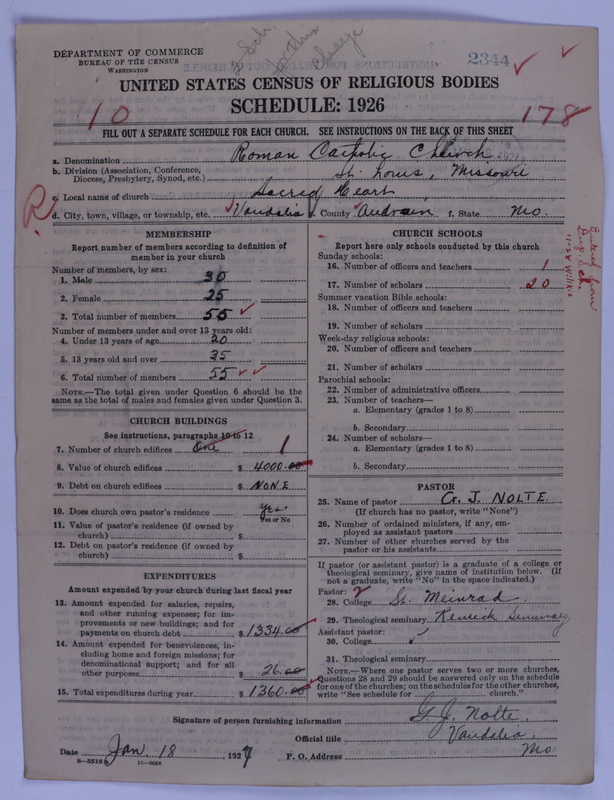 DEPARTMENT OF COMMERCE
BUREAU OF THE CENSUS
WASHINGTON
2344
UNITED STATES CENSUS OF RELIGIOUS BODIES
SCHEDULE: 1926
10
178
FILL OUT A SEPARATE SCHEDULE FOR EACH CHURCH. SEE INSTRUCTIONS ON THE BACK OF THIS SHEET
a. Denomination Roman Catholic Church
b. Division (Association, Conference, St. Louis, Missouri
Diocese, Presbytery, Synod, etc.)
c. Local name of church Sacred Heart
d. City, town, village, or township, etc. Vandalia e. County Audrain f. State Mo.
MEMBERSHIP
Report number of members according to definition of
member in your church
Number of members, by sex:
1. Male 30
2. Female 25
3. Total number of members 55
Number of members under and over 13 years old:
4. Under 13 years of age 20
5. 13 years old and over 35
6. Total number of members 55
NOTE.—The total given under Question 6 should be
the same as the total of males and females given under Question 3.
CHURCH BUILDINGS
See instructions, paragraphs 10 to 12
7. Number of church edifices One 1
8. Value of church edifices $ 4000.00
9. Debt on church edifices $ NONE
10. Does church own pastor's residence Yes
Yes or No
11. Value of pastor's residence (if owned by
church) $
12. Debt on pastor's residence (if owned by
church) $
EXPENDITURES
Amount expended by your church during last fiscal year
13. Amount expended for salaries, repairs,
and other running expenses; for im-
provements or new buildings; and for
payments on church debt $ 1334.00
14. Amount expended for benevolences, in-
cluding home and foreign missions; for
denominational support; and for all
other purposes $ 26.00
15. Total expenditures during year $ 1360.00
CHURCH SCHOOLS
Report here only schools conducted by this church
Sunday schools:
16. Number of officers and teachers 1
17. Number of scholars 20
Summer vacation Bible schools:
18. Number of officers and teachers
19. Number of scholars
Week-day religious schools:
20. Number of officers and teachers
21. Number of scholars
Parochial schools:
22. Number of administrative officers
23. Number of teachers—
a. Elementary (grades 1 to 8)
b. Secondary
24. Number of scholars—
a. Elementary (grades 1 to 8)
b. Secondary
PASTOR
25. Name of pastor G. J. NOLTE
(If church has no pastor, write "None")
26. Number of ordained ministers, if any, em-
ployed as assistant pastors
27. Number of other churches served by the
pastor or his assistants
If pastor (or assistant pastor) is a graduate of a college or
theological seminary, give name of institution below. (If
not a graduate, write "No" in the space indicated.)
Pastor: 2
28. College St. Meinrad
29. Theological seminary Kenrick Seminary
Assistant pastor:
30. College
31. Theological seminary
NOTE.—Where one pastor serves two or more churches,
Questions 28 and 29 should be answered only on the schedule
for one of the churches; on the schedules for the other churches,
write "See schedule for church."
Signature of person furnishing information G. J. Nolte
Official title Vandalia
Date Jan. 18, 1927 P. O. Address Mo
8—5518a 11—9054